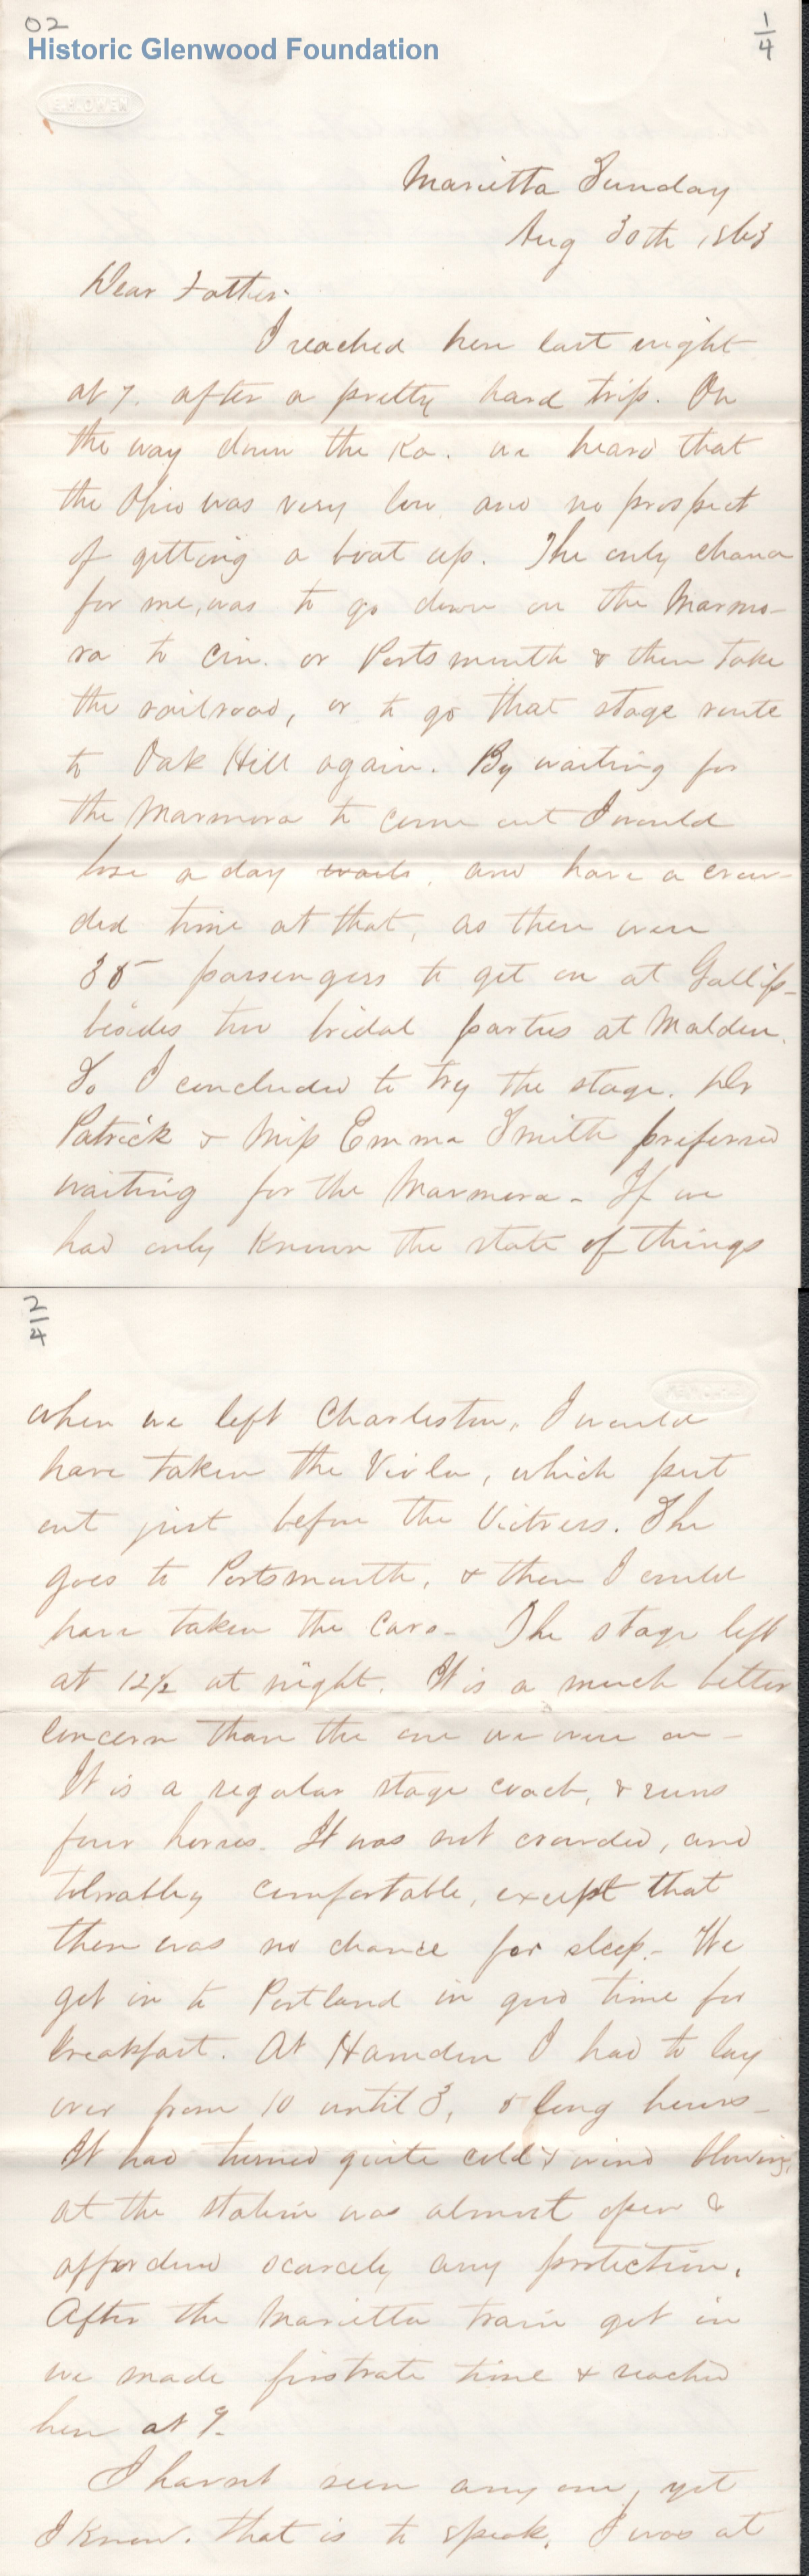 02
1/4
Historic Glenwood Foundation
E.H.OWEN
Marietta Sunday
Aug 30th 1863
Dear Father.
I reached here last night
at 7. after a pretty hard trip. On
the way down the Ka. we heard that
the Ohio was very low, and no prospect
of getting a boat up. The only chance
for me, was to go down on the Marmo-
ra to Cin. or Portsmouth & then take
the railroad, or to go that stage route
to Oak Hill again. By waiting for
the Marmora to come out I would
lose a day and have a crow-
ded time at that, as there were
35 passengers to get on at Gallip-
besides two bridal parties at Malden.
So I concluded to try the stage. Dr
Patrick & Miss Emma Smith preferred
waiting for the Marmora - If we
had only known the state of things
2/4
when we left Charleston, I would
have taken the Viola, which put
out just before the Victress. She
goes to Portsmouth, & then I could
have taken the cars - The stage left
at 12 1/2 at night. It is a much better
concern than the one we were on -
It is a regular stage coach, & runs
four horses. It was not crowded, and
tolerably comfortable, except that
there was no chance for sleep. - We
got in to Portland in good time for
breakfast. At Hamden I had to lay
over from 10 until 3, 5 long hours -
It had turned quite cold & wind blowing,
at the station was almost open &
afforded scarcely any protection.
After the Marietta train got in
we made firstrate time & reached
here at 7.
I havnt seen any one, yet
I know. that is to speak. I was at